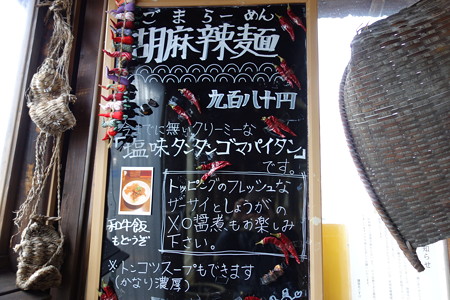 ごまらーめん
胡麻辣麺
九百八十円
今までに無いクリーミーな
塩味タンタンゴマパイタン」
です。
トッピングのフレッシュな
ザーサイとしょうがの
XO醤煮もお楽しみ
下さい。
和牛飯
もとうぎ
※トンコツスープもできます
(かなり濃厚)